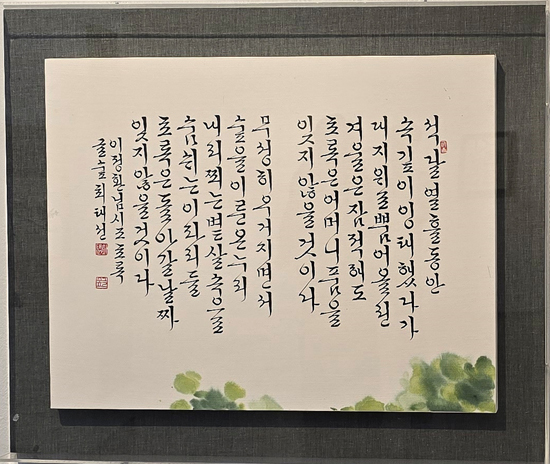 석 달 열흘 동안
속 깊이 잉태했다가
대지 위로 뿜어 올린
겨울은 잠적해도
초록은 어머니 품을
잊지 않을 것이라
무성히 우거지면서
숲을 이룬 온 누리
내리쬐는 볕살 속을
숨쉬는 이파리들
초록은 돌아갈 날짜
잊지 않을 것이라
이정환님 시조 초록
글숲 최태선